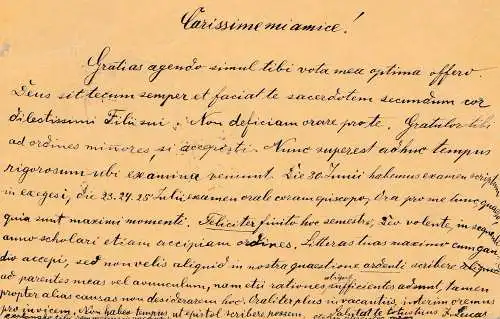 Carissime mi amice!
Gratias agendo simul tibi vota mea optima offero.
Deus sit tecum semper et faciat te sacerdotem secundum cor
dilectissimi Filii sui. Non deficiam orare pro te. Gratulor tibi
ad ordines minores, si accepisti. Nunc superest adhuc tempus
rigorosum ubi examina veniunt. Die 30 Junii habemus examen script.
in exegesi, die 23. 24. 25 Julii examen orale coram episcopo. Ora pro me hunc
quia sunt maximi momenti. Feliciter finito hoc semestre, Deo volente, in seque
anno scholari etiam accipiam ordines. Litteras tuas maximo cum gau
dio accepi, sed non velis aliquid in nostra quaestione ardenti scribere
ad parentes meas vel avunculum, nam etsi rationes sufficientes adsunt, tamen
propter alias causas non desiderarem hoc. Oraliter plus in vacantiis, interim oremus
pro invicem. Non habeo tempus, ut epistol. scribere possem.